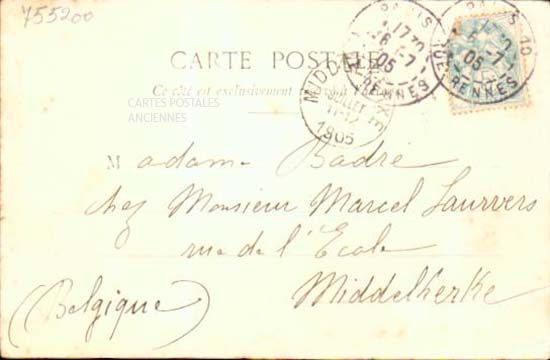 755200
CARTE POSTALE
Ce côté est exclusivement
CARTES POSTALES
ANCIENNES
PARIS
17 30
6 -7
05
RUE RENNES
PARIS
6 -7
05
RENNES
MIDDELKERKE
JUILLET
11-12
1905
Madame Badré
chez Monsieur Marcel Laurvers
rue de l'Ecole
Middelkerke
(Belgique)